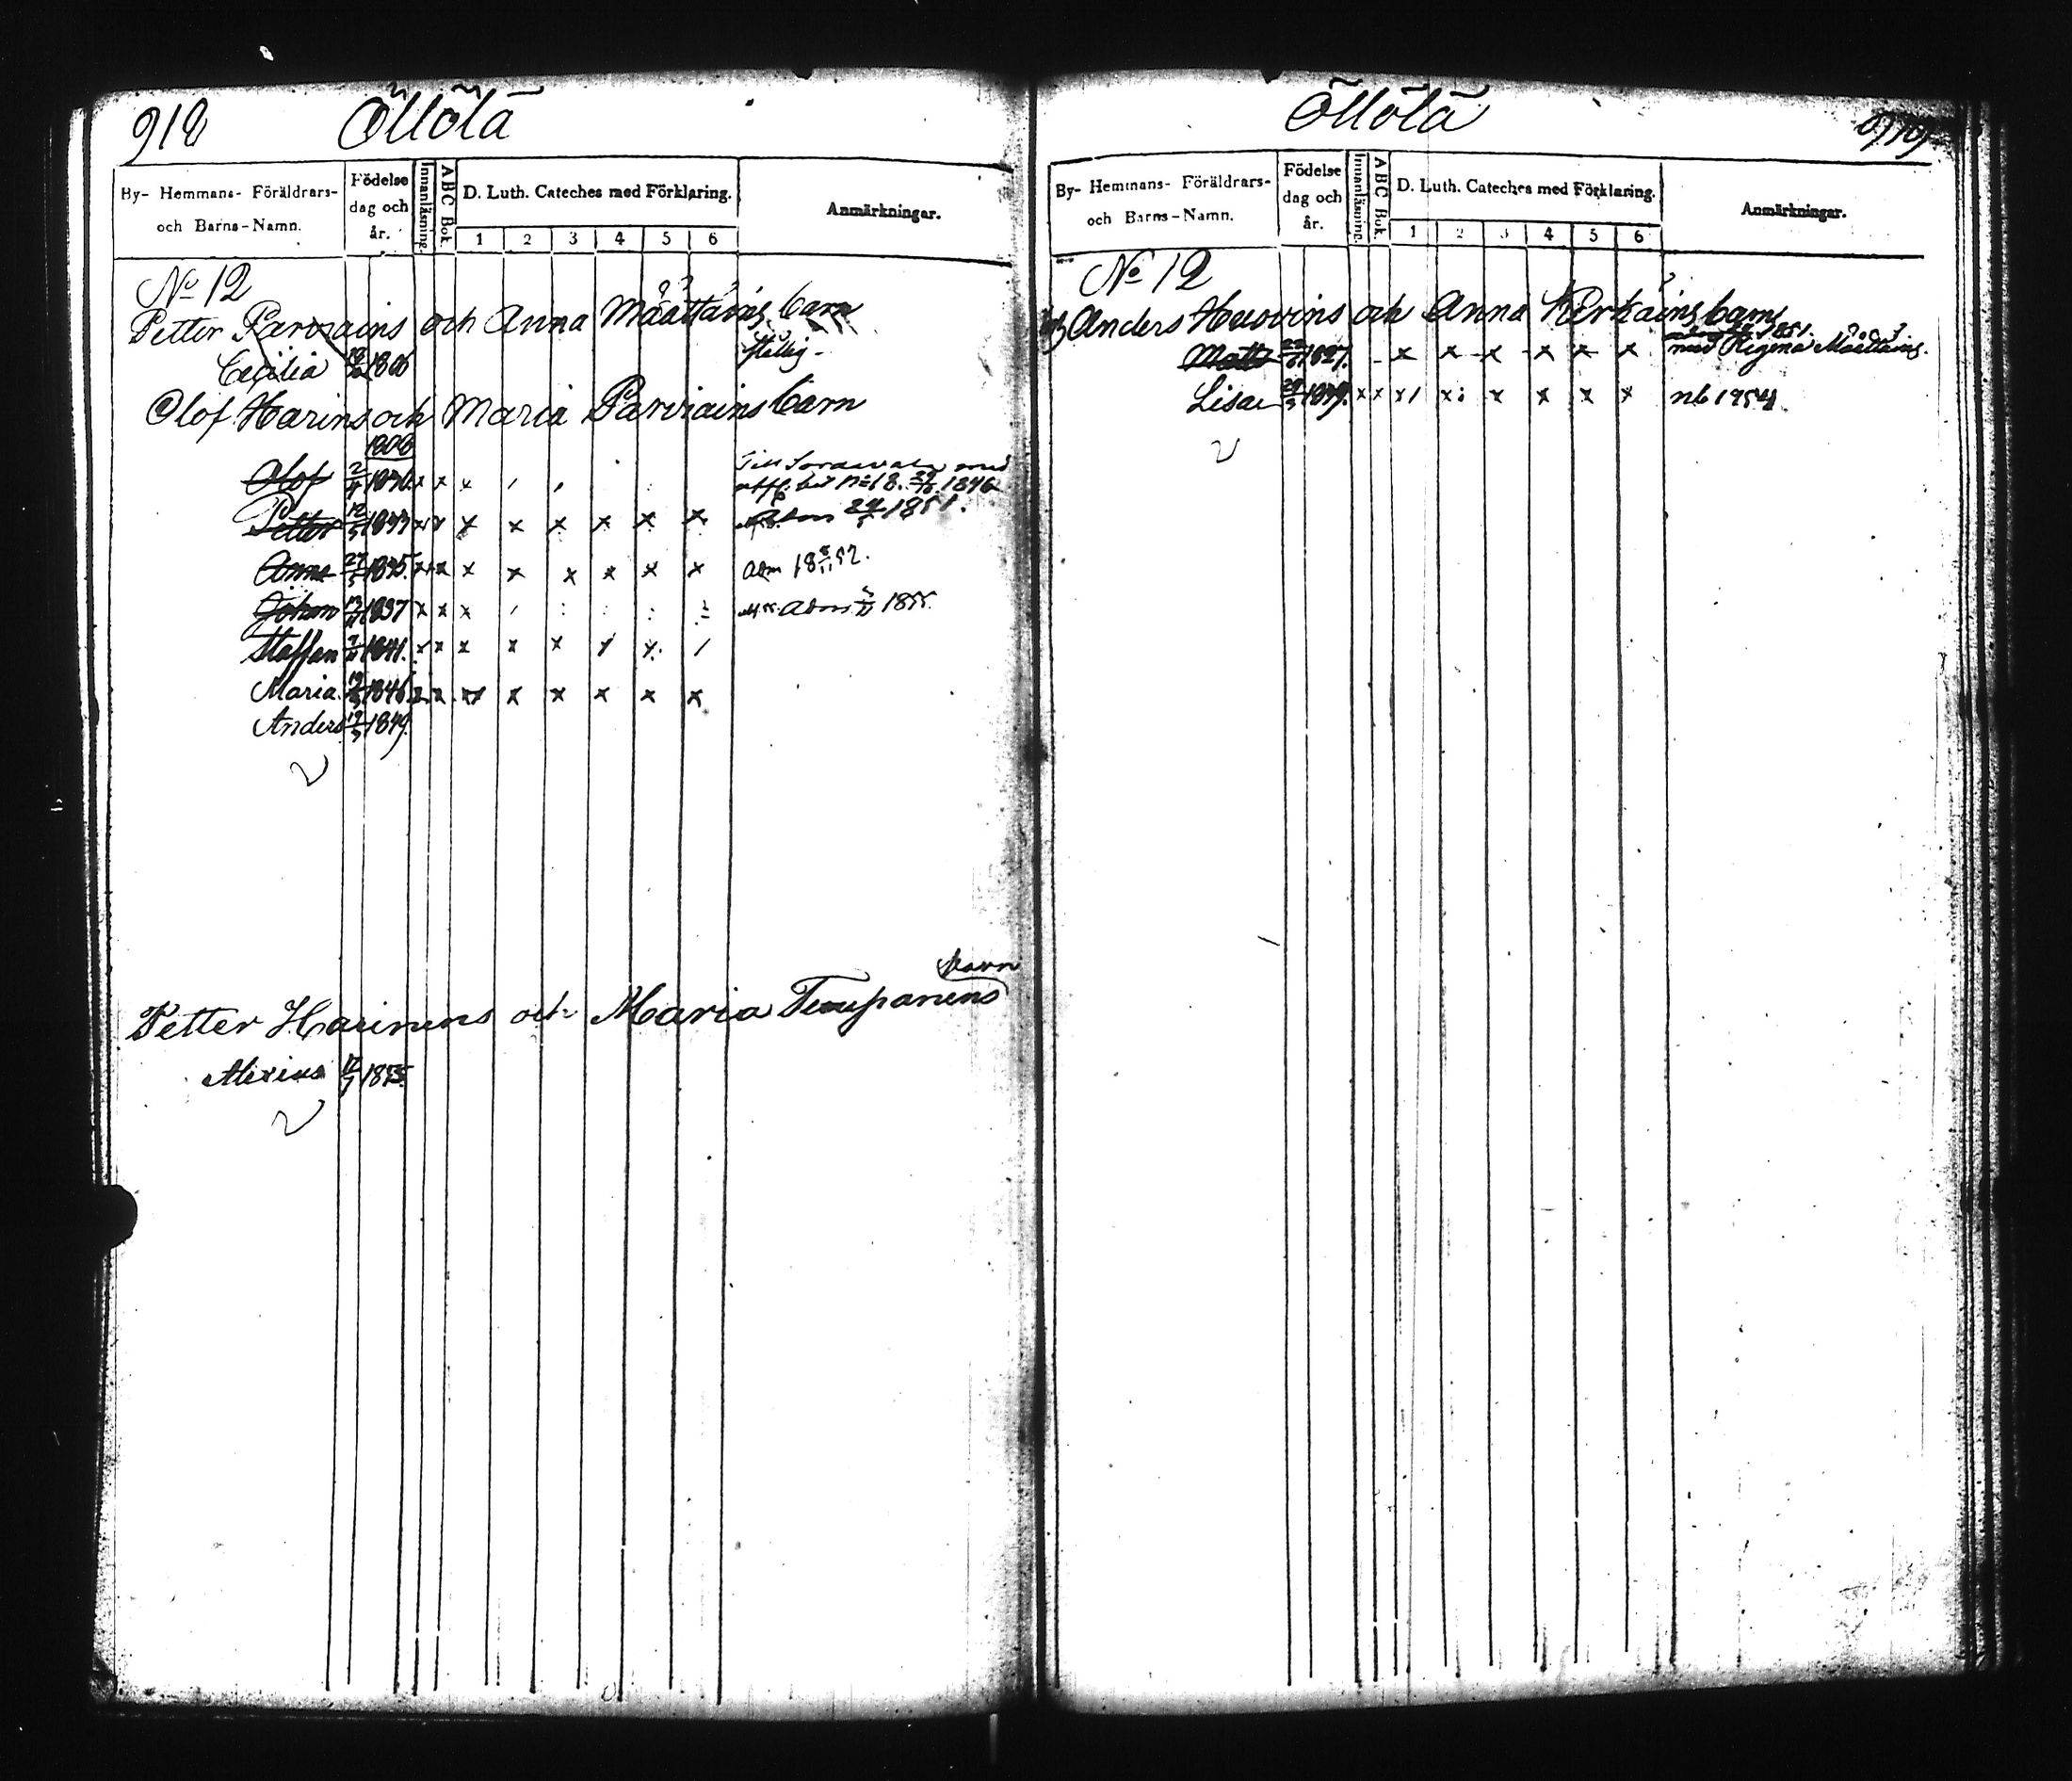 918 Öllölä
By- Hemmans- Föräldrars- och Barns-Namn.
Födelse dag och år.
Innanläsning.
ABC Bok.
D. Luth. Cateches med Förklaring.
1 2 3 4 5 6
Anmärkningar.
No 12
Petter Parviains och Anna Määttäins barn
Cecilia 1806
Olof Harins och Maria Parviains barn
1808
Olof 1830. x x x
Till Sordavala med
att. bet. No 18. 1846
Petter 12/5 1833 x x x x x x x x
Adm 24/5 1851.
Anna 27/5 1835. x x x x x x x x
adm 18 8/11 52.
Johan 1837 x x x
Adm 1855.
Staffan 1841. x x x x x x x /
Maria 1846. x x x x x x x x
Anders 1849.
barn
Petter Harinens och Maria Timpanens
Alexius 12/7 1855.
Öllölä 919
By- Hemmans- Föräldrars- och Barns-Namn.
Födelse dag och år.
Innanläsning.
ABC Bok.
D. Luth. Cateches med Förklaring.
1 2 3 4 5 6
Anmärkningar.
No 12
Anders Huovins och Anna Kerkäins barn
1851.
Matts 1827. x x x x x x
med Regina Määttäins.
Lisa 1839. x x x x x x x x
nb 1854.